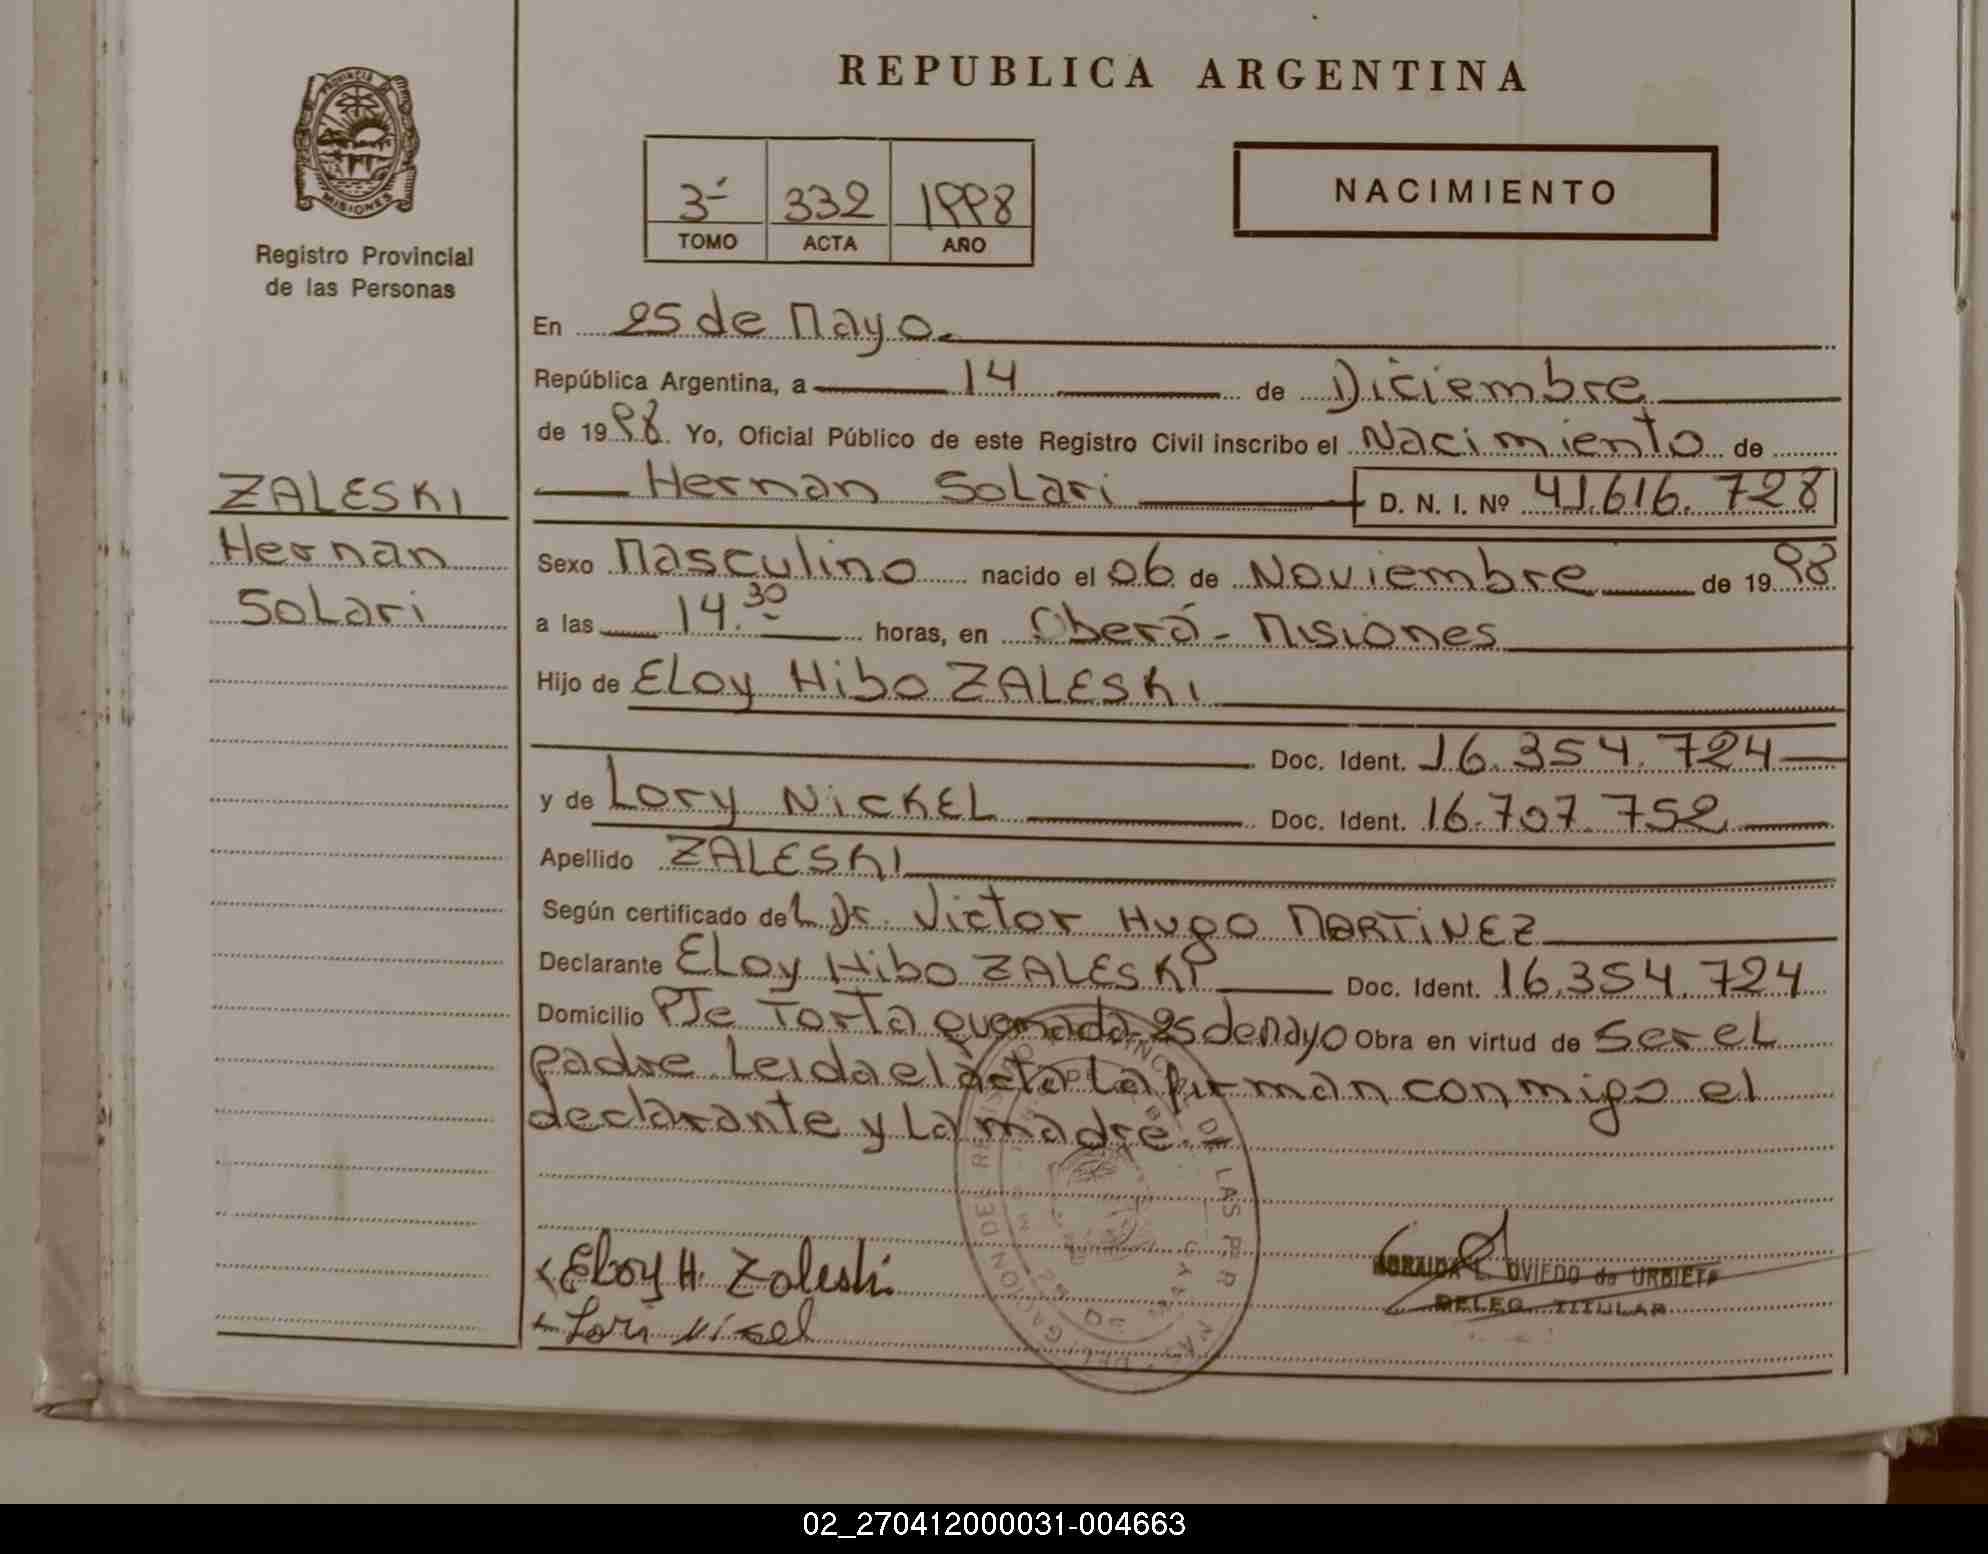 REPUBLICA ARGENTINA
PROVINCIA
MISIONES
Registro Provincial
de las Personas
3ª 332 1998
TOMO ACTA AÑO
NACIMIENTO
En 25 de Mayo.
República Argentina, a 14 de Diciembre
de 1998. Yo, Oficial Público de este Registro Civil inscribo el Nacimiento de
Hernan Solari D. N. I. Nº 41.616.728
ZALESKI
Hernan
Solari
Sexo Masculino nacido el 06 de Noviembre de 1998
a las 14.30 horas, en Oberá - Misiones
Hijo de Eloy Hibo ZALESKI
Doc. Ident. 16.354.724
y de Lory NICKEL Doc. Ident. 16.707.752
Apellido ZALESKI
Según certificado del Dr. Victor Hugo MARTINEZ
Declarante Eloy Hibo ZALESKI Doc. Ident. 16.354.724
Domicilio Pje Torta quemada-25 de Mayo Obra en virtud de ser el
padre. Leida el acta la firman conmigo el
declarante y la madre.-
Eloy H. Zaleski
Lori Nikel
L. OVIEDO de URBIETA
DELEG. TITULAR
02_270412000031-004663